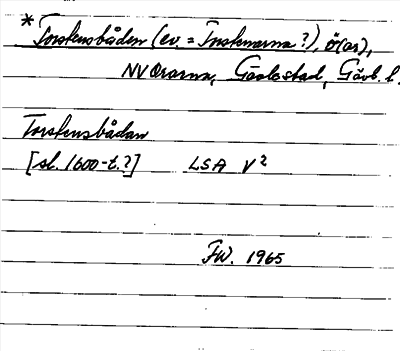 * Torstensbådan (ev. = Trutenarna?), ö(ar),
NV Orarna, Gävle stad, Gävl. l.
Torstensbådan
[sl. 1600-t.?] LSA V²
FW. 1965